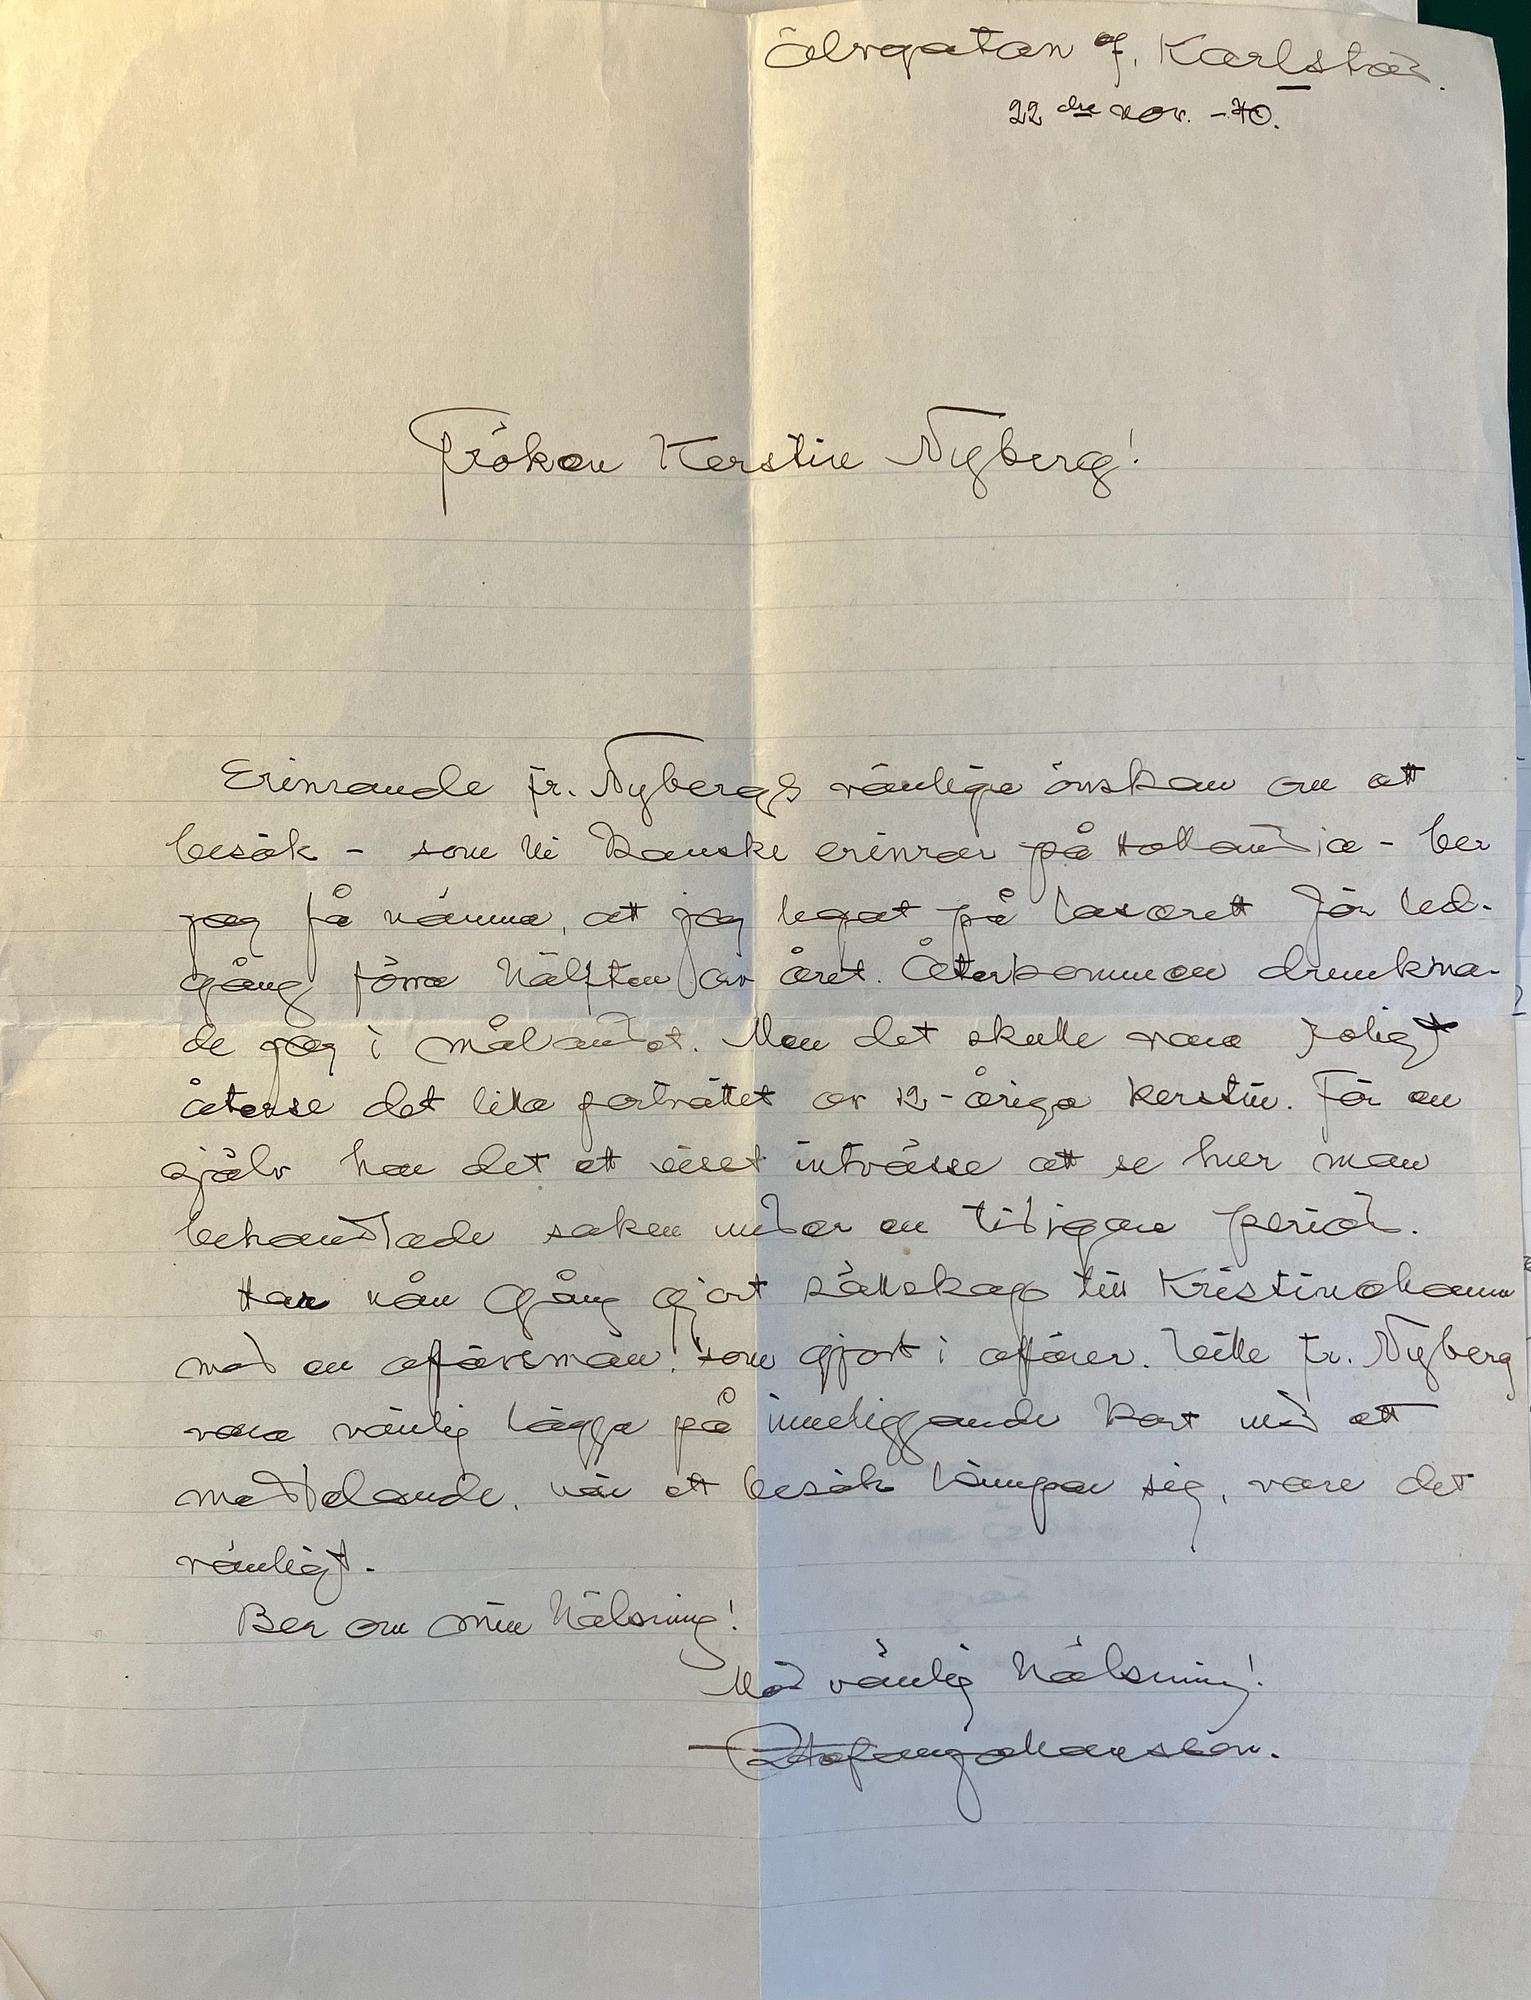 Älvgatan 7, Karlstad.
22 dre nov. -40.
Fröken Kerstin Nyberg!
Erinrande fr. Nybergs vänliga önskan om att
besök - som Ni kanske erinrar på Hollandia - ber
jag få nämna, att jag legat på lasarett för led-
gång förra hälften av året. Återkommen drunkna-
de jag i målandet. Men det skulle vara roligt
återse det lilla porträttet av 12-åriga Kerstin. För en
själv har det ett visst inträsse att se hur man
behandlade saken under en tidigare period.
Har nån gång gjort sällskap till Kristinehamn
med en affärsman! som gjort i affärer. Ville fr. Nyberg
vara vänlig lägga på inneliggande kort med ett
meddelande, när ett besök lämpar sig, vore det
vänligt.
Ber om min hälsning!
Med vänlig hälsning!
Johansson.